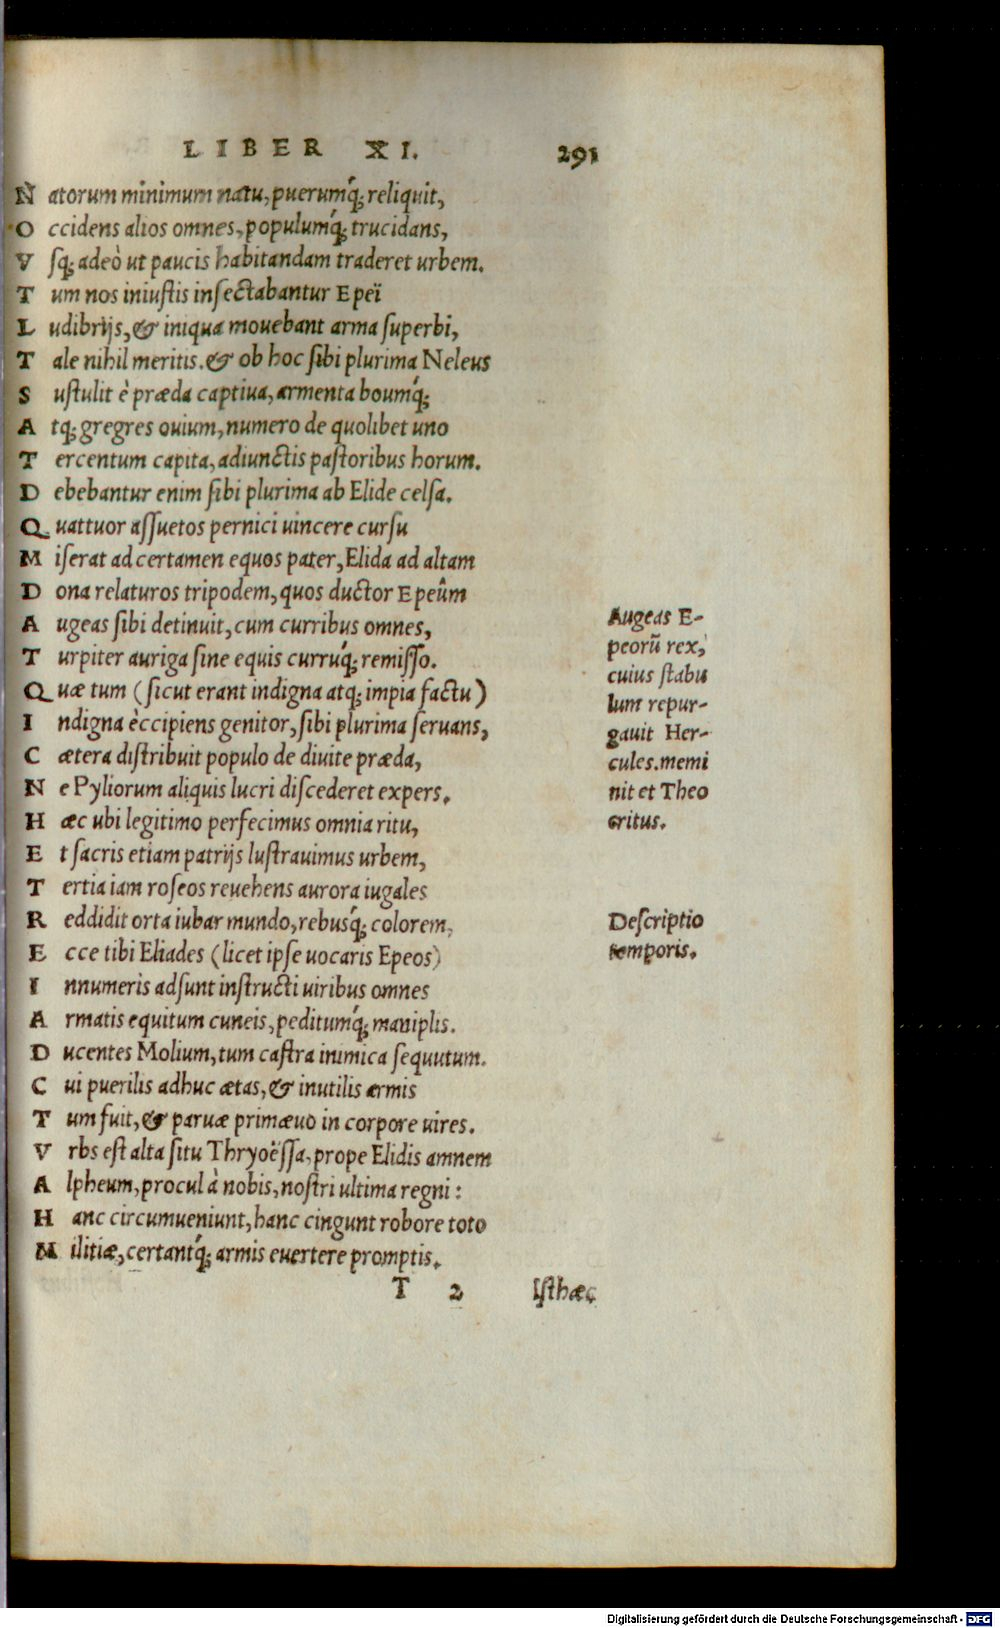 LIBER XI. 291
N atorum minimum natu, puerumq́; reliquit,
O ccidens alios omnes, populumq́; trucidans,
V sq; adeò ut paucis habitandam traderet urbem.
T um nos iniustis insectabantur Epeï
L udibrijs, & iniqua mouebant arma superbi,
T ale nihil meritis. & ob hoc sibi plurima Neleus
S ustulit è præda captiua, armenta boumq́;
A tq; gregres ouium, numero de quolibet uno
T ercentum capita, adiunctis pastoribus horum.
D ebebantur enim sibi plurima ab Elide celsa.
Q uattuor assuetos pernici uincere cursu
M iserat ad certamen equos pater, Elida ad altam
D ona relaturos tripodem, quos ductor Epeûm
A ugeas sibi detinuit, cum curribus omnes,
T urpiter auriga sine equis curruq́; remisso.
Q uæ tum (sicut erant indigna atq; impia factu)
I ndigna èccipiens genitor, sibi plurima seruans,
C ætera distribuit populo de diuite præda,
N e Pyliorum aliquis lucri discederet expers.
H æc ubi legitimo perfecimus omnia ritu,
E t sacris etiam patrijs lustrauimus urbem,
T ertia iam roseos reuehens aurora iugales
R eddidit orta iubar mundo, rebusq́; colorem,
E cce tibi Eliades (licet ipse uocaris Epeos)
I nnumeris adsunt instructi uiribus omnes
A rmatis equitum cuneis, peditumq́; maniplis.
D ucentes Molium, tum castra inimica sequutum.
C ui puerilis adhuc ætas, & inutilis armis
T um fuit, & paruæ primæuo in corpore uires.
V rbs est alta situ Thryoëssa, prope Elidis amnem
A lpheum, procul à nobis, nostri ultima regni:
H anc circumueniunt, hanc cingunt robore toto
M ilitiæ, certantq́; armis euertere promptis.
T 2 Isthæc
Augeas E-
peorũ rex,
cuius stabu
lum repur-
gauit Her-
cules. memi
nit et Theo
critus.
Descriptio
temporis.
Digitalisierung gefördert durch die Deutsche Forschungsgemeinschaft - DFG